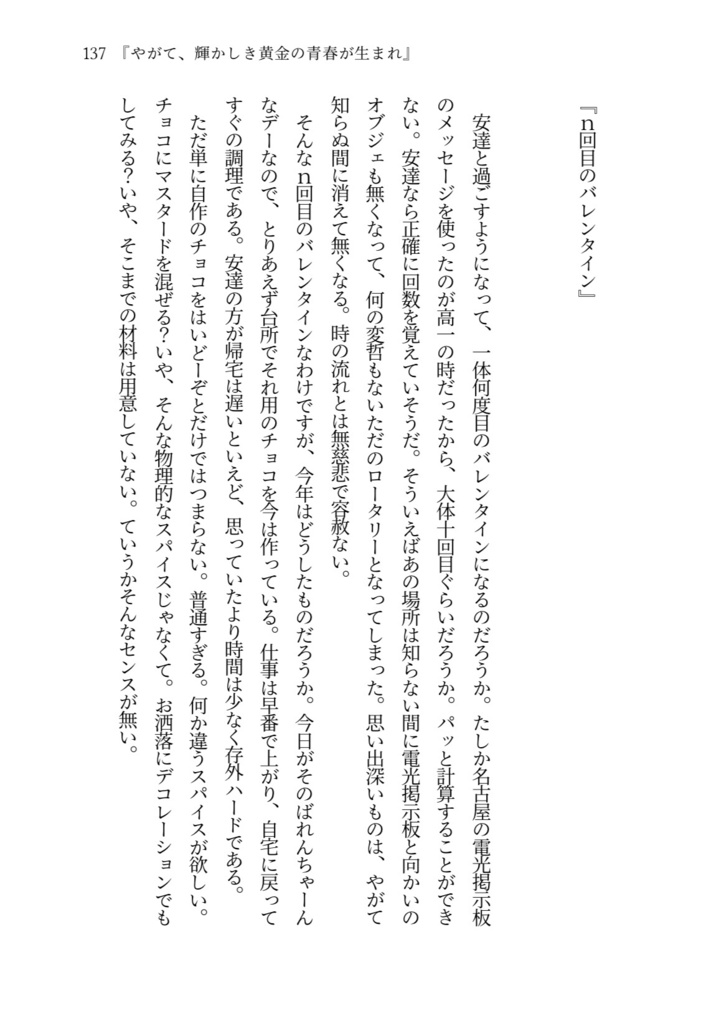 137 『やがて、輝かしき黄金の青春が生まれ』
『ｎ回目のバレンタイン』
安達と過ごすようになって、一体何度目のバレンタインになるのだろうか。たしか名古屋の電光掲示板
のメッセージを使ったのが高一の時だったから、大体十回目ぐらいだろうか。パッと計算することができ
ない。安達なら正確に回数を覚えていそうだ。そういえばあの場所は知らない間に電光掲示板と向かいの
オブジェも無くなって、何の変哲もないただのロータリーとなってしまった。思い出深いものは、やがて
知らぬ間に消えて無くなる。時の流れとは無慈悲で容赦ない。
そんなｎ回目のバレンタインなわけですが、今年はどうしたものだろうか。今日がそのばれんちゃーん
なデーなので、とりあえず台所でそれ用のチョコを今は作っている。仕事は早番で上がり、自宅に戻って
すぐの調理である。安達の方が帰宅は遅いといえど、思っていたより時間は少なく存外ハードである。
ただ単に自作のチョコをはいどーぞとだけではつまらない。普通すぎる。何か違うスパイスが欲しい。
チョコにマスタードを混ぜる？いや、そんな物理的なスパイスじゃなくて。お洒落にデコレーションでも
してみる？いや、そこまでの材料は用意していない。ていうかそんなセンスが無い。